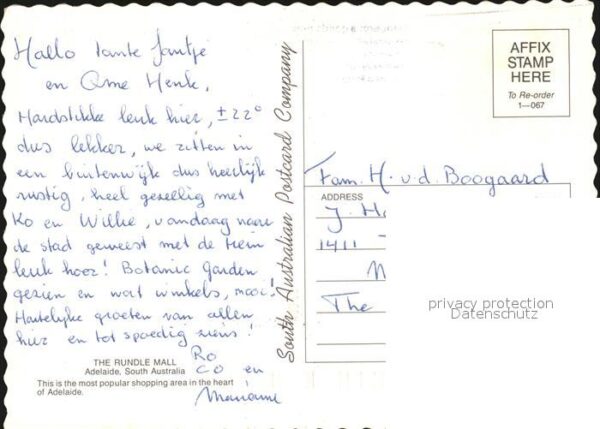 Hallo tante Jantje
en Ome Henk,
Hardstikke leuk hier, ±22°
dus lekker, we zitten in
een buitenwijk dus heerlijk
rustig, heel gezellig met
Ko en Willie, vandaag naar
de stad geweest met de trein
leuk hoor! Botanic Garden
gezien en wat winkels, mooi!
Hartelijke groeten van allen
hier en tot spoedig ziens!
Ro
Co en
Marianne
THE RUNDLE MALL
Adelaide, South Australia
This is the most popular shopping area in the heart
of Adelaide.
South Australian Postcard Company
AFFIX
STAMP
HERE
To Re-order
1—067
Fam. H. v.d. Boogaard
ADDRESS
J. H
1411
N
The
privacy protection
Datenschutz